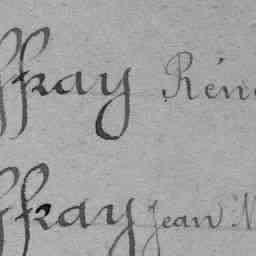 ffray Rén
ffray Jean